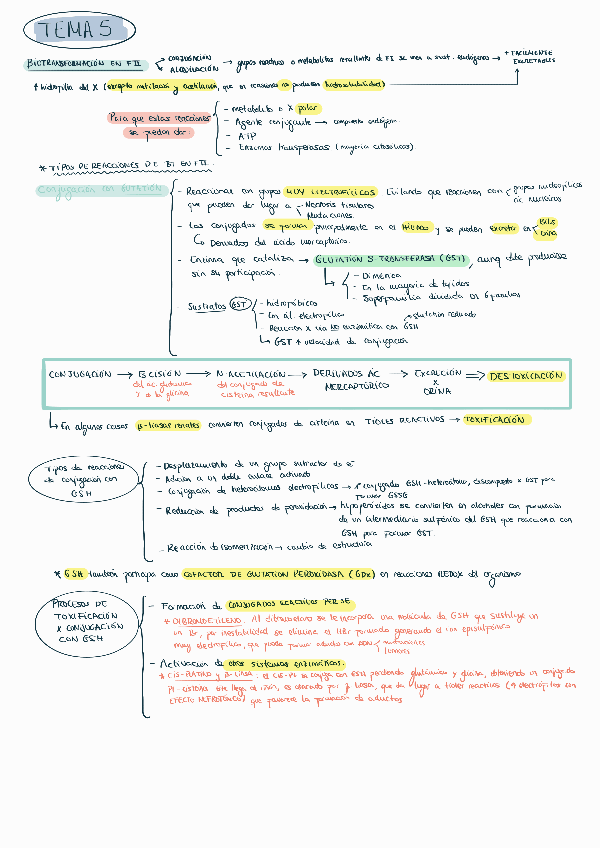 TEMA 5
BIOTRANSFORMACIÓN EN FII
CONJUGACIÓN
→ grupos reactivos o metabolitos resultantes de FI se unen a sust. endógenos → + FÁCILMENTE
EXCRETABLES
↑ hidrofilia del X (excepto metilación y acetilación, que en ocasiones no producen hidrosolubilidad)
Para que estas reacciones
se puedan dar:
- metabolito o X polar
- Agente conjugante → compuesto endógeno.
- ATP
- Enzimas transferasas (mayoría citosólicas).
* TIPOS DE REACCIONES DE BT EN FII.
Conjugación con GLUTATIÓN
- Reaccionar con grupos MUY ELECTROFÍLICOS Evitando que reaccionen con grupos nucleofílicos
ác. nucleicos
que pueden dar lugar a - Necrosis tisulares
- Mutaciones.
- Los conjugados se forman principalmente en el HÍGADO y se pueden excretar en BILIS
ORINA
↳ Derivados del ácido mercaptúrico.
- Enzima que cataliza → GLUTATIÓN S-TRANSFERASA (GST), aunq debe producirse
sin su participación.
- Dimérica
- En la mayoría de tejidos
- Superfamilia dividida en 6 familias
- Sustratos GST
- hidrofóbicos
- Con át. electrofílico
- Reaccionar x vía no enzimática con GSH
→ glutatión reducido
↳ GST ↑ velocidad de conjugación
CONJUGACIÓN → ESCISIÓN → N-ACETILACIÓN → DERIVADOS ÁC. → EXCRECIÓN ⇒ DESTOXIFICACIÓN
MERCAPTÚRICO X
ORINA
del ác. glutámico
y d la glicina
del conjugado de
cisteína resultante
↳ En algunos casos β-liasas renales convierten conjugados de cisteína en TIOLES REACTIVOS → TOXIFICACIÓN
Tipos de reacciones
de conjugación con
GSH
- Desplazamiento de un grupo sustractor de e⁻
- Adición a un doble enlace activado
- Conjugación de heteroátomos electrofílicos → 1º conjugado GSH-heteroátomo, descompuesto x GST para
formar GSSG
- Reducción de productos de peroxidación → hipoperóxidos se convierten en alcoholes con formación
de un intermediario sulfénico del GSH que reacciona con
GSH para formar GST.
- Reacción de isomerización → cambio de estructura
* GSH también participa como COFACTOR DE GLUTATIÓN PEROXIDASA (GPx) en reacciones REDOX del organismo
PROCESOS DE
TOXIFICACIÓN
X CONJUGACIÓN
CON GSH
- Formación de CONJUGADOS REACTIVOS PER SE
* DIBROMOETILENO. Al dibromoetano se le incorpora una molécula de GSH que sustituye un
un Br, por inestabilidad se elimina el HBr formado generando el ion episulfonio
muy electrofílico, que puede formar aductos con ADN mutaciones
tumores
- Activación de otros sistemas enzimáticos.
* CIS-PLATINO y β-LIASA: el CIS-Pt se conjuga con GSH perdiendo glutámico y glicina, obteniendo un conjugado
Pt-CISTEÍNA. Este llega al riñón, es atacado por β liasas, que da lugar a tioles reactivos (↑ electrófilos con
EFECTO NEFROTÓXICO) que favorece la formación de aductos.